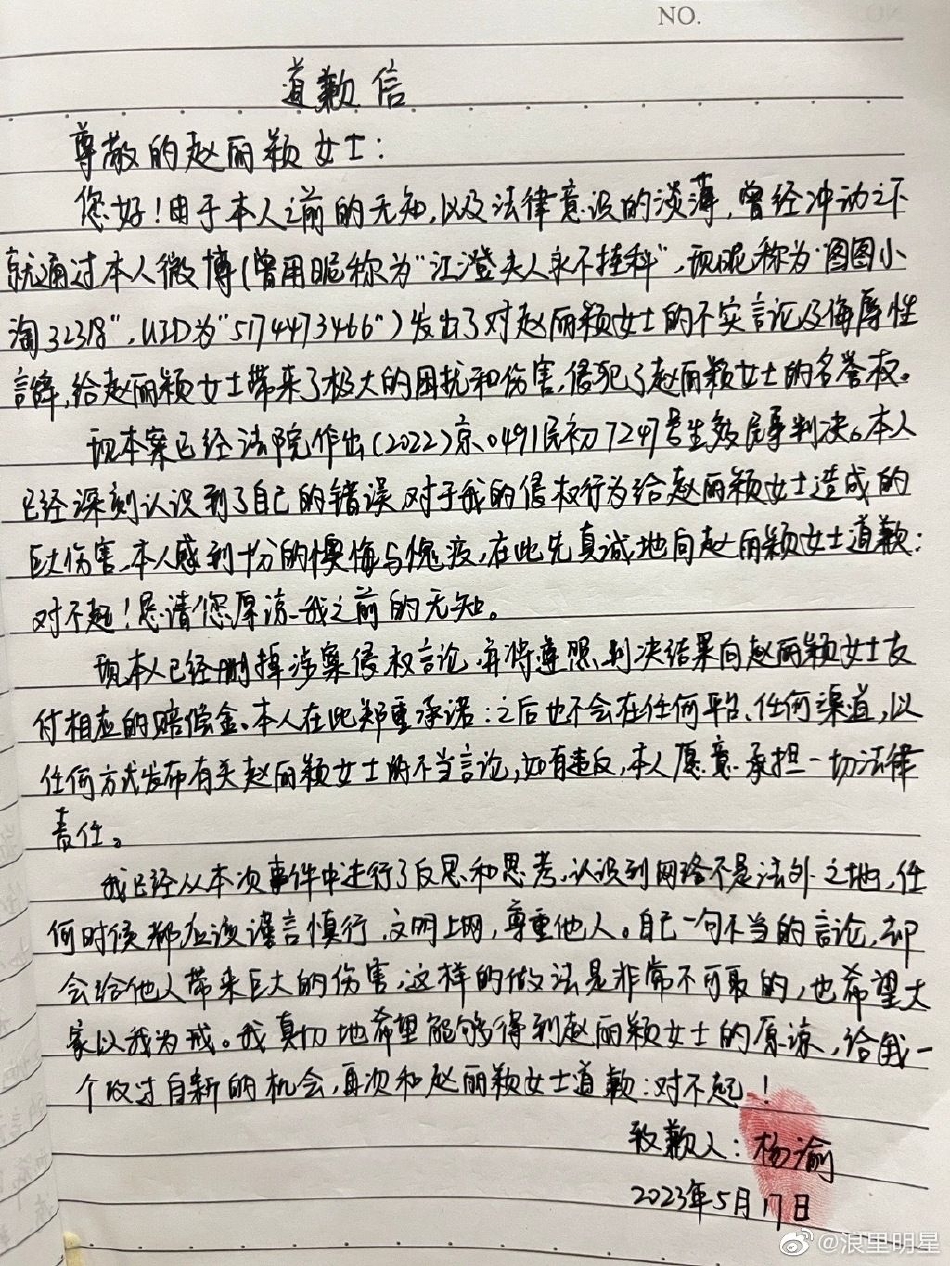 NO.
道歉信
尊敬的赵丽颖女士:
您好!由于本人之前的无知,以及法律意识的淡薄,曾经冲动之下
就通过本人微博(曾用昵称为"江澄夫人永不挂科",现昵称为"图图小
淘32318",UID为"5174473466")发出了对赵丽颖女士的不实言论及侮辱性
言辞,给赵丽颖女士带来了极大的困扰和伤害,侵犯了赵丽颖女士的名誉权。
现本案已经法院作出(2022)京0491民初7247号生效民事判决。本人
已经深刻认识到了自己的错误,对于我的侵权行为给赵丽颖女士造成的
巨大伤害,本人感到十分的懊悔与愧疚,在此先真诚地向赵丽颖女士道歉:
对不起!恳请您原谅我之前的无知。
现本人已经删掉涉案侵权言论,并将遵照判决结果向赵丽颖女士支
付相应的赔偿金。本人在此郑重承诺:之后也不会在任何平台、任何渠道,以
任何方式发布有关赵丽颖女士的不当言论,如有违反,本人愿意承担一切法律
责任。
我已经从本次事件中进行了反思和思考,认识到网络不是法外之地,任
何时候都应该谨言慎行,文明上网,尊重他人。自己一句不当的言论,却
会给他人带来巨大的伤害,这样的做法是非常不可取的,也希望大
家以我为戒。我真切地希望能够得到赵丽颖女士的原谅,给我一
个改过自新的机会,再次和赵丽颖女士道歉:对不起!
致歉人:杨渝
2023年5月17日
@浪里明星